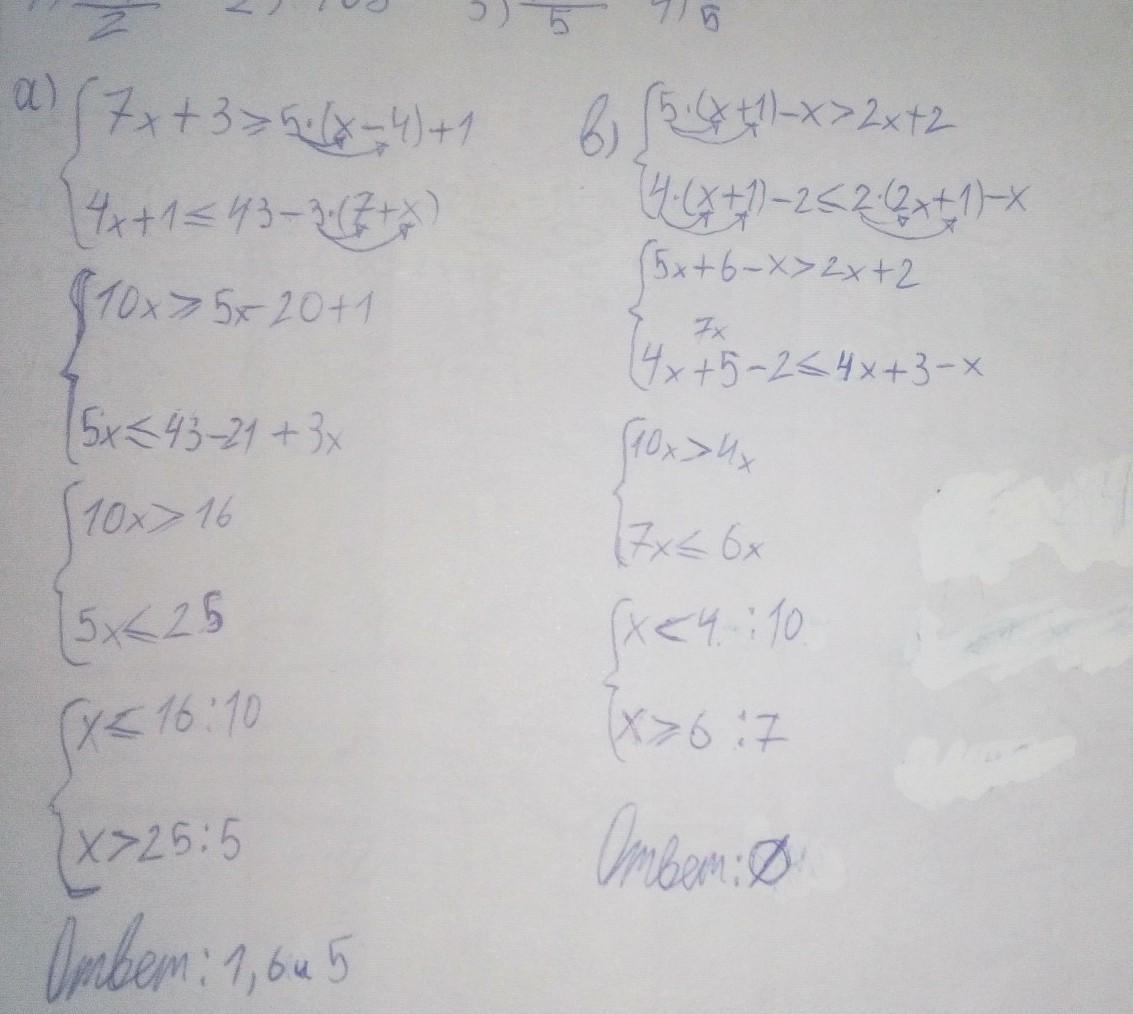 2 2) 5 5
а) { 7x + 3 ⩾ 5·(x − 4) + 1
4x + 1 ⩽ 43 − 3·(7 + x)
{ 10x ⩾ 5x − 20 + 1
5x ⩽ 43 − 21 + 3x
{ 10x > 16
5x ⩽ 25
{ x ⩽ 16 : 10
x > 25 : 5
Ответ: 1,6 и 5
в) { 5·(x + 1) − x > 2x + 2
4·(x + 1) − 2 ⩽ 2·(2x + 1) − x
{ 5x + 6 − x > 2x + 2
7x
4x + 5 − 2 ⩽ 4x + 3 − x
{ 10x > 4x
7x ⩽ 6x
{ x < 4 : 10
x ⩾ 6 : 7
Ответ: ∅